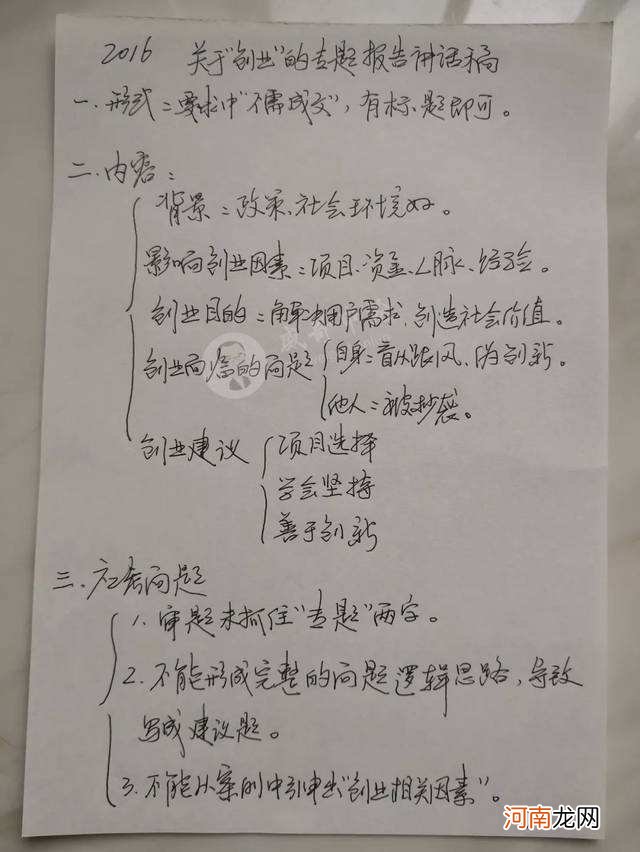 2016 关于“创业”的专题报告讲话稿
一.形式:要求中“不需成文”,有标题即可。
二.内容:
背景:政策、社会环境好。
影响创业因素:项目、资金、人脉、经验。
创业目的:解决用户需求、创造社会价值。
创业面临的问题
自身:盲从跟风、伪创新。
他人:被抄袭。
创业建议
项目选择
学会坚持
善于创新
三.应答问题
1.审题未抓住“专题”两字。
2.不能形成完整的问题逻辑思路,导致
写成建议题。
3.不能从案例中引申出“创业相关因素”。
河南龙网